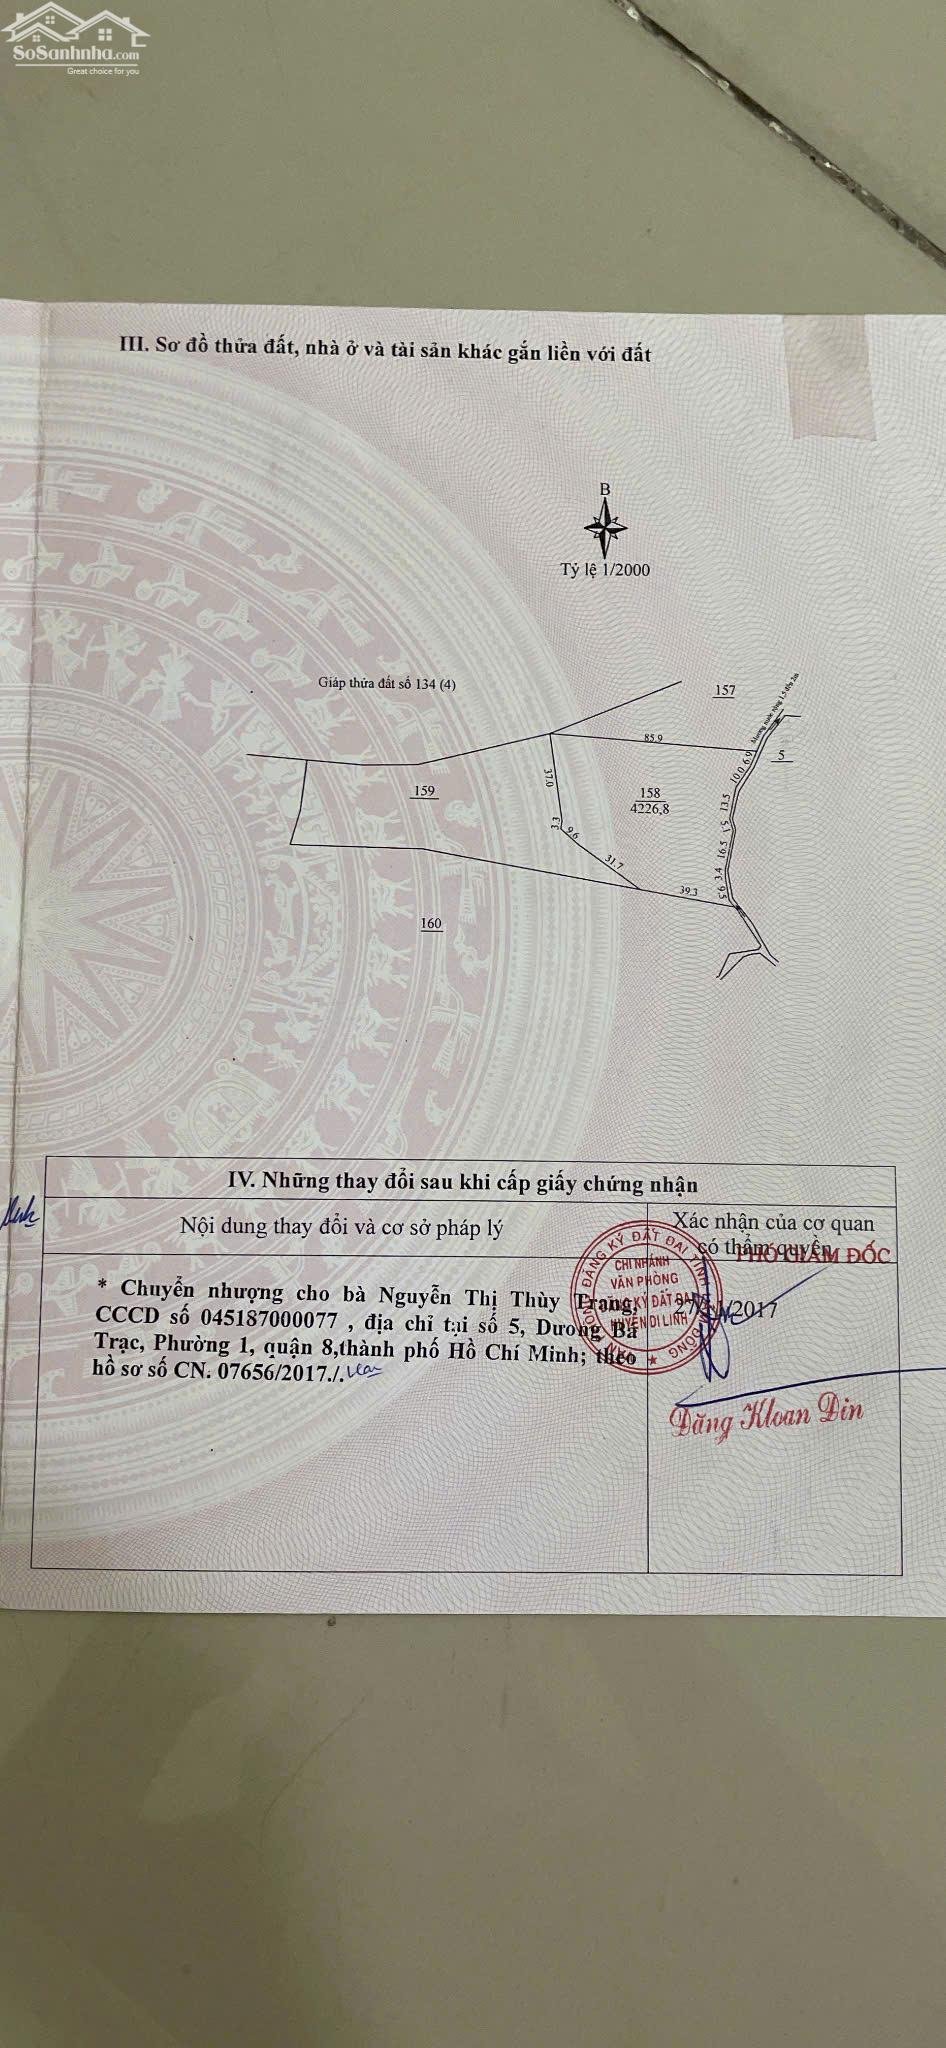 SoSanhnha.com
Great choice for you
III. Sơ đồ thửa đất, nhà ở và tài sản khác gắn liền với đất
B
Tỷ lệ 1/2000
Giáp thửa đất số 134 (4)
157
Mương nước rộng 1,5 đến 2m
5
85.9
6.9
10.0
159
37.0
158
4226,8
13.5
3.3
9.6
1.5
16.5
31.7
3.4
5.6
39.3
160
IV. Những thay đổi sau khi cấp giấy chứng nhận
Nội dung thay đổi và cơ sở pháp lý
Xác nhận của cơ quan
có thẩm quyền
PHÓ GIÁM ĐỐC
* Chuyển nhượng cho bà Nguyễn Thị Thùy Trang,
CCCD số 045187000077 , địa chỉ tại số 5, Dương Bá
Trạc, Phường 1, quận 8,thành phố Hồ Chí Minh; theo
hồ sơ số CN. 07656/2017./.
CHI NHÁNH
VĂN PHÒNG
ĐĂNG KÝ ĐẤT ĐAI
HUYỆN DI LINH
/2017
Đăng Kloan Đin